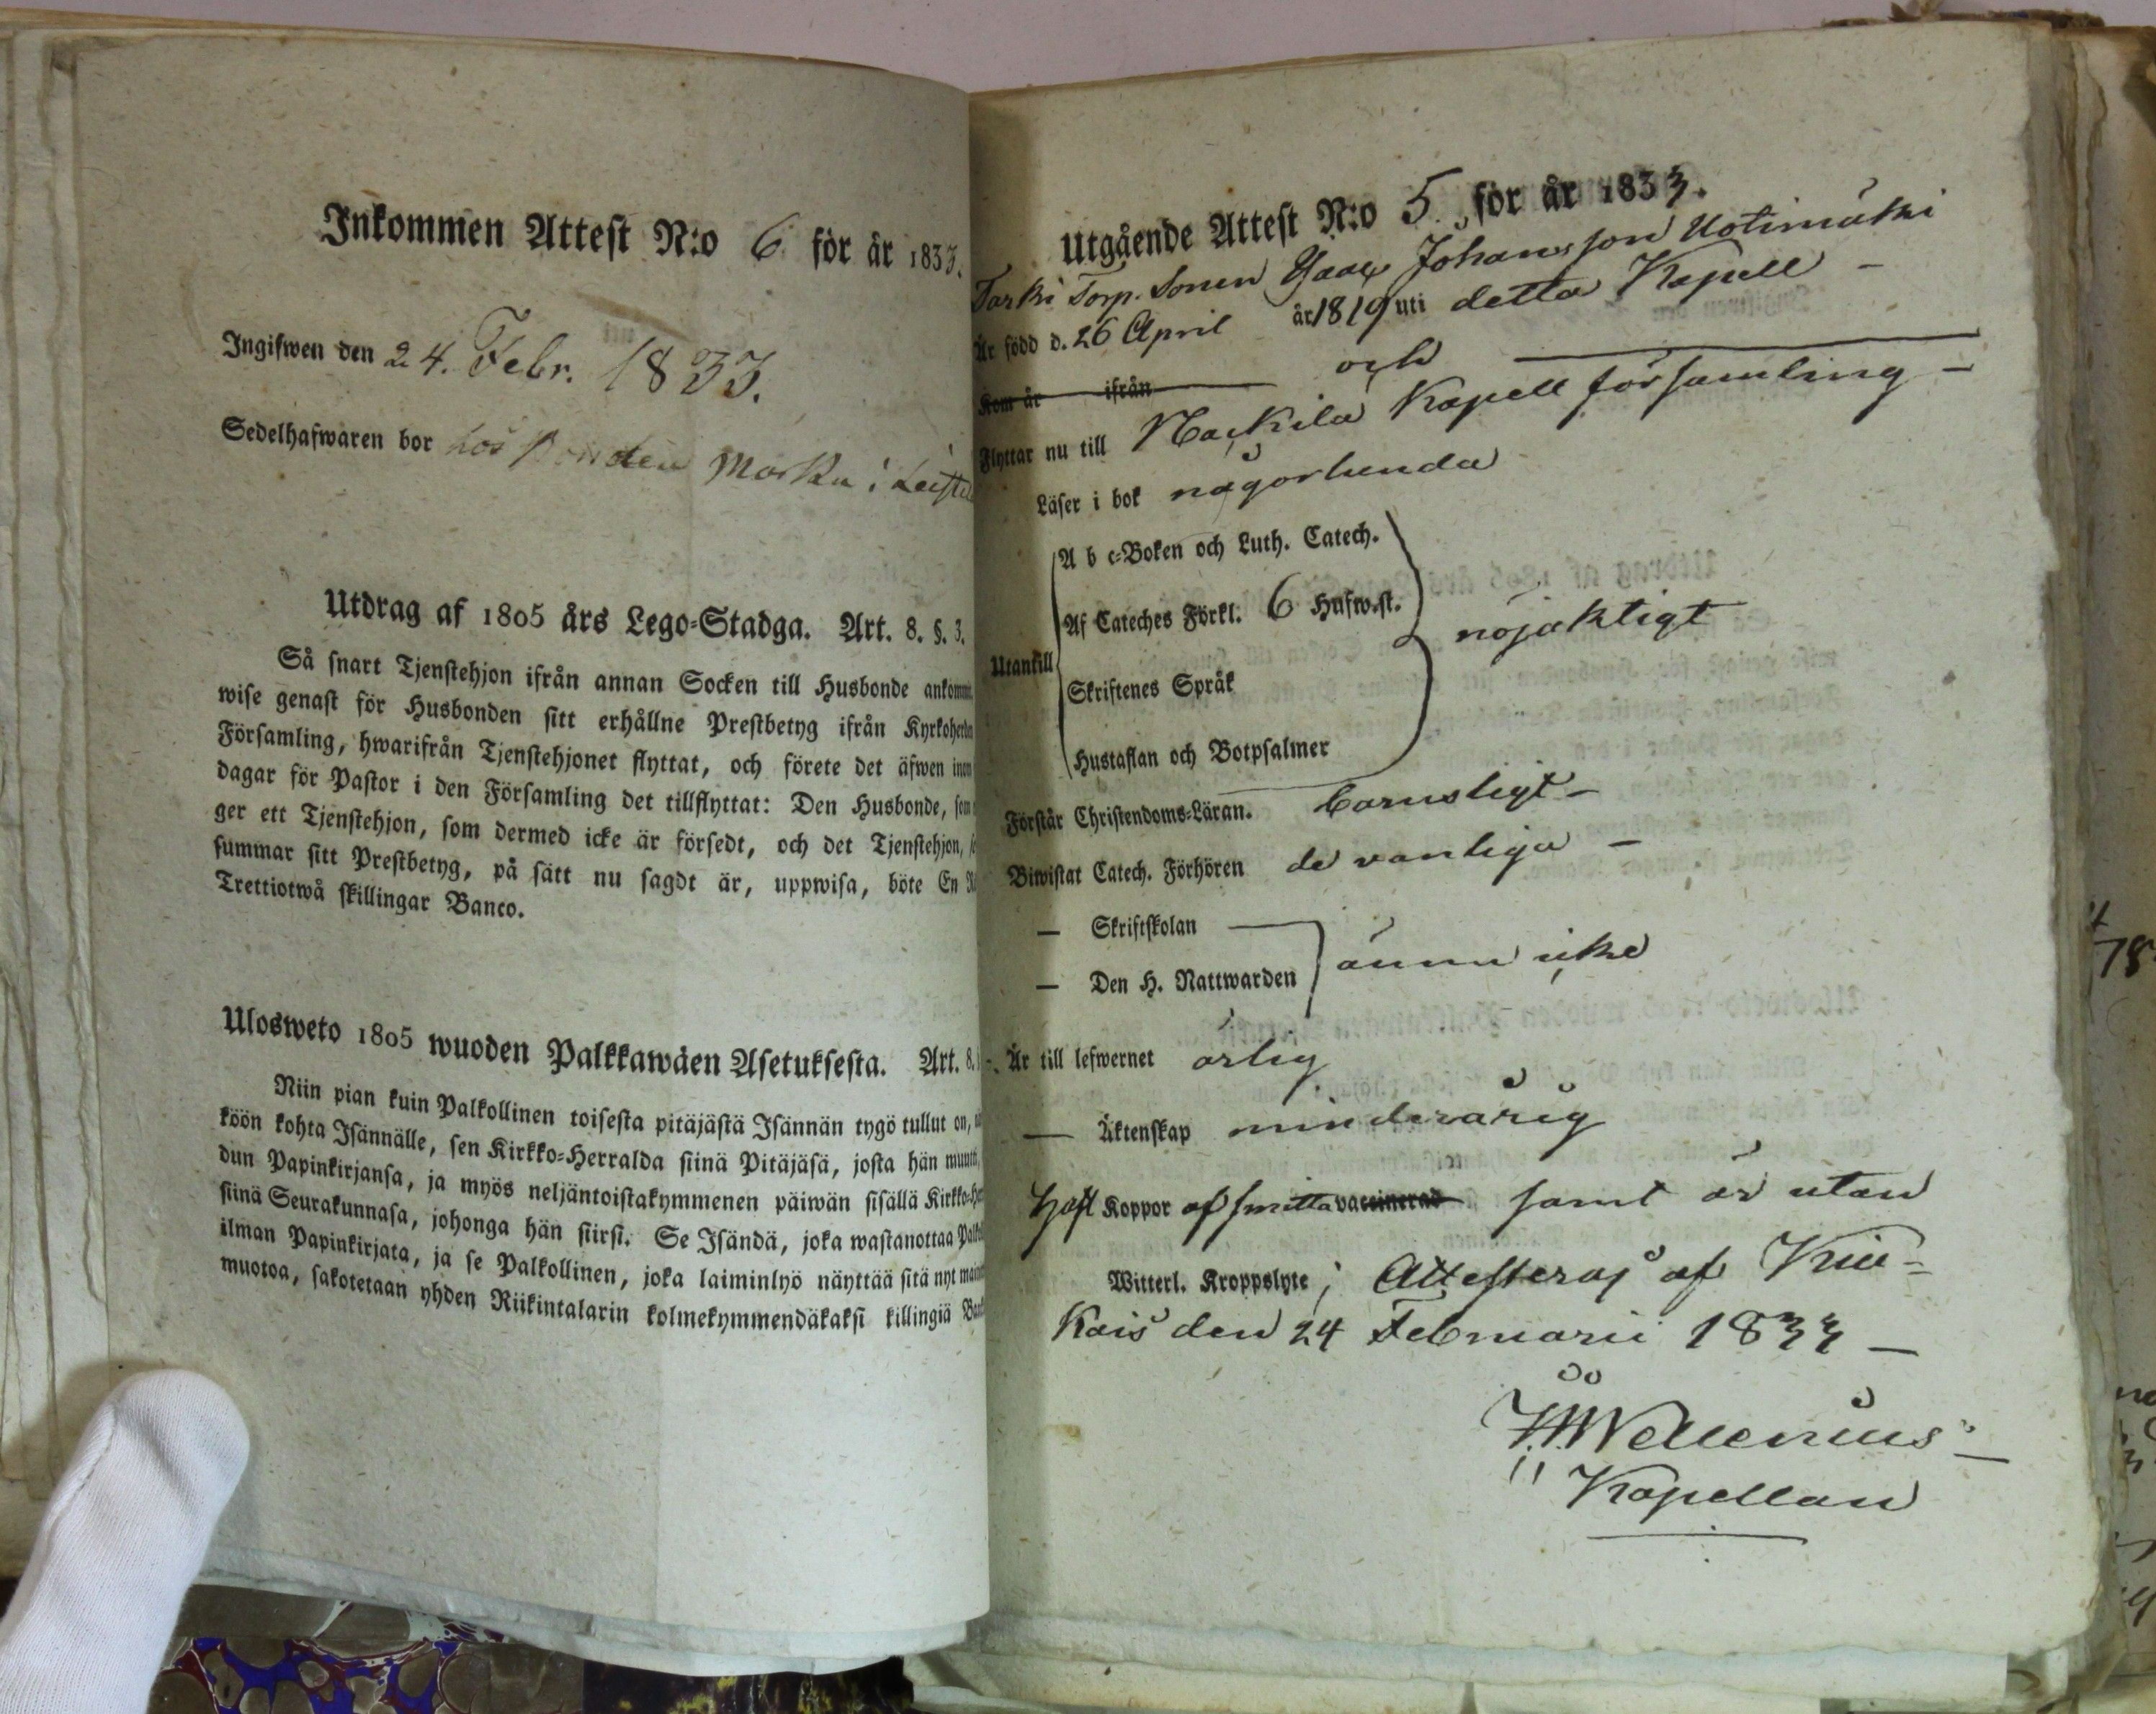 Inkommen Attest N:o 6 för år 1833.
Ingifwen den 24. Febr. 1833.
Sedelhafwaren bor hos Bonden Marku i
Utdrag af 1805 års Lego-Stadga. Art. 8. §. 3.
Så snart Tjenstehjon ifrån annan Socken till Husbonde
wise genast för Husbonden sitt erhållne Prestbetyg ifrån
Församling, hwarifrån Tjenstehjonet flyttat, och förete det äfwen
dagar för Pastor i den Församling det tillflyttat: Den Husbonde,
ger ett Tjenstehjon, som dermed icke är försedt, och det Tjenstehjon,
summar sitt Prestbetyg, på sätt nu sagdt är, uppwisa, böte En
Trettiotwå skillingar Banco.
Ulosweto 1805 wuoden Palkkawäen Asetuksesta. Art. 8.
Niin pian kuin Palkollinen toisesta pitäjästä Isännän tygö tullut on,
köön kohta Isännälle, sen Kirkko-Herralda siinä Pitäjäsä, josta hän
dun Papinkirjansa, ja myös neljäntoistakymmenen päiwän sisällä
siinä Seurakunnasa, johonga hän siirsi. Se Isändä, joka wastanottaa
ilman Papinkirjata, ja se Palkollinen, joka laiminlyö näyttää sitä nyt
muotoa, sakotetaan yhden Riikintalarin kolmekymmendäkaksi killingiä
Utgående Attest N:o 5 för år 1833.
Torp. Sonen Isaac Johansson Uotimäki
Är född d. 26 April år 1819 uti detta Kapell
Kom år ifrån och
Flyttar nu till Nackila Kapell församling
Läser i bok någorlunda
A b c-Boken och Luth. Catech.
Af Cateches Förkl. 6 Hufw.st.
Utantill nöjaktigt
Skriftenes Språk
Hustaflan och Botpsalmer
Förstår Christendoms-Läran. barnsligt
Biwistat Catech. Förhören de vanliga
— Skriftskolan
— Den H. Nattwarden ännu icke
Är till lefwernet ärlig
— Äktenskap minderårig
Haft Koppor af smitta vaccinerad samt är utan
Witterl. Kroppslyte; Attesteras af Kiu-
kais den 24 Februarii 1833
Wellenius
Kapellan